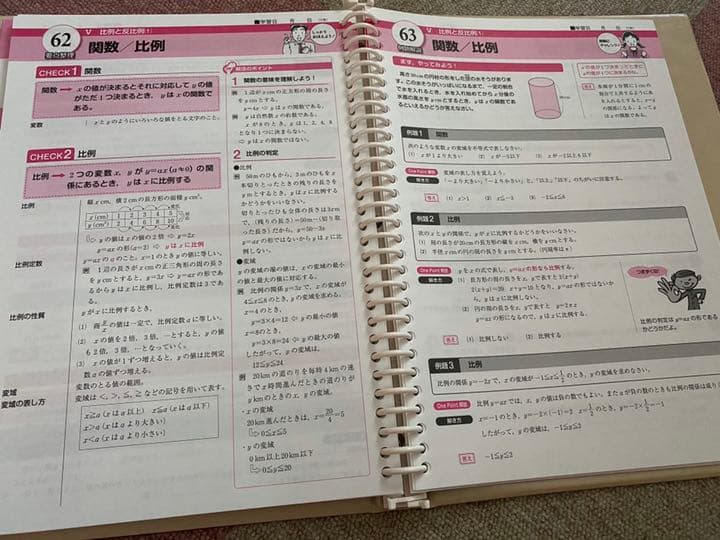 ■学習日 月 日
62
要点整理
V 比例と反比例(1)
関数/比例
CHECK 1 関数
関数→ xの値が決まるとそれに対応してyの値
がただ1つ決まるとき, yはxの関数で
ある。
変数
xとyのようにいろいろな値をとる文字のこと。
CHECK 2 比例
比例→ 2つの変数x, yがy=ax(a≠0)の関
係にあるとき, yはxに比例する
比例
縦x cm, 横2cmの長方形の面積y cm²。
x(cm) 1 2 3 4 5
y(cm²) 2 4 6 8 10
yの値はxの値の2倍 → y=2x
y=axの形(a=2) → yはxに比例
比例定数
y=axのaのこと。x=1のときyの値に等しい。
例 1辺の長さがxcmの正三角形の周の長さ
をycmとすると, y=3x → y=axの形であ
るからyはxに比例し, 比例定数は3であ
る。
比例の性質
yがxに比例するとき,
(1) 商y/xの値は一定で, 比例定数aに等しい。
(2) xの値を2倍, 3倍, …とすると, yの値
も2倍, 3倍, …となっていく。
(3) xの値が1ずつ増えると, yの値は比例定
数aの値ずつ増える。
変域
変数のとる値の範囲。
変域の表し方
変域は<, >, ≦, ≧などの記号を用いて表す。
x≧a (xはa以上) x≦a (xはa以下)
x>a (xはaより大きい)
x<a (xはaより小さい)
1 関数の意味を理解しよう!
例 1辺がxcmの正方形の周の長さ
をycmとする。
y=4x → yはxの関数である。
例 yは自然数xの約数である。
x が8のとき, yは1, 2, 4, 8
となり1つに決まらない。
→ yはxの関数ではない。
2 比例の判定
●比例
例 50mのひもから, 3mのひもをx
本切りとったときの残りの長さを
ymとすると, yはxに比例するか
どうかをいいなさい。
切りとったひも全体の長さは3xm
で, (残りの長さ)=50m-(切り取
った長さ)だから, y=50-3x
y=axの形ではないからyはxに比
例しない。
●変域
yの変域の端の値は, xの変域の最小
の値と最大の値に対応する。
例 比例の関係y=3xで, xの変域が
4≦x≦8のとき, yの変域を求める。
x=4のとき,
y=3×4=12 ← yの最小の値
x=8のとき,
y=3×8=24 ← yの最大の値
したがって, yの変域は,
12≦y≦24
例 20kmの道のりを毎時4kmの速
さでx時間進んだときの道のりが
ykmのとき,
・xの変域
20km進んだときは, x=20/4=5
→ 0≦x≦5
・yの変域
0km以上20km以下
→ 0≦y≦20
■学習日 月 日
63
例題解説
V 比例と反比例(1)
関数/比例
まず, やっておこう!
高さ30cmの円柱の形をした空の水そうがあります。
この水そうがいっぱいになるまで, 一定の割合
で水を入れるとき, 水を入れ始めてからx分後の
水面の高さをycmとするとき, yはxの関数である
といえるかどうか答えなさい。
例題1 関数
次のような変数xの変域を不等式で表しなさい。
(1) xが1より大きい (2) xが-2以下 (3) xが-2以上6以下
One Point 解説
変域の表し方を覚えよう。
解き方
「~より大きい」, 「~より小さい」と「以上」, 「以下」のちがいに注意する。
答え (1) x>1 (2) x≦-2 (3) -2≦x≦6
例題2 比例
次のxとyの関係で, yがxに比例するかどうかをいいなさい。
(1) 周の長さが20cmの長方形の縦をxcm, 横をycmとする。
(2) 半径xcmの円の周の長さをycmとする。(円周率はπ)
One Point 解説
yをxの式で表し, y=axの形なら比例する。
解き方
答え (1) 比例しない (2) 比例する
つまずくな!
比例の判定はy=axの形である
かどうかだよ。
例題3 比例
比例の関係y=-2xで, xの変域が-1≦x≦1/2のとき, yの変域を求めなさい。
One Point 解説
解き方
x=-1のとき, y=-2×(-1)=2 x=1/2のとき, y=-2×1/2=-1
したがって, yの変域は, -1≦y≦2
答え -1≦y≦2